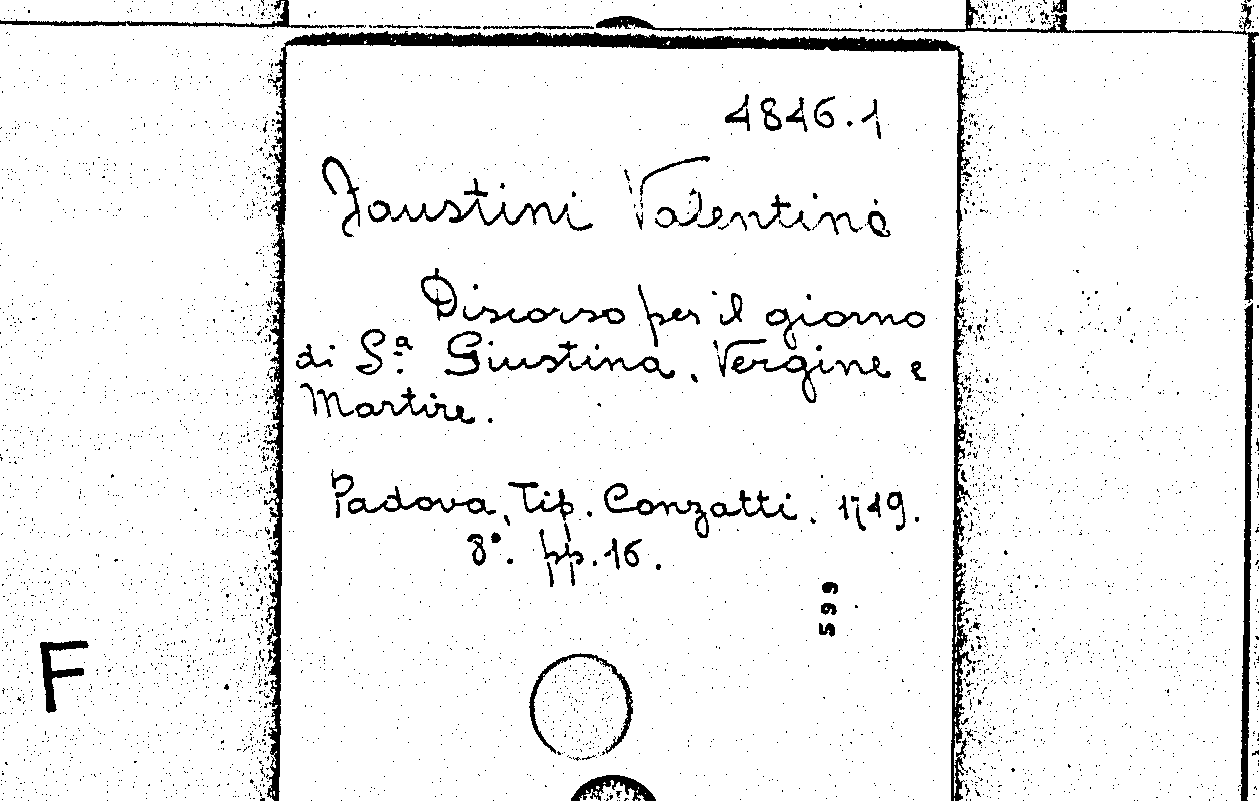 4846.1
Faustini Valentino
Discorso per il giorno
di S.ª Giustina, Vergine e
Martire.
Padova, Tip. Conzatti, 1749.
8°. pp. 16.
599
F